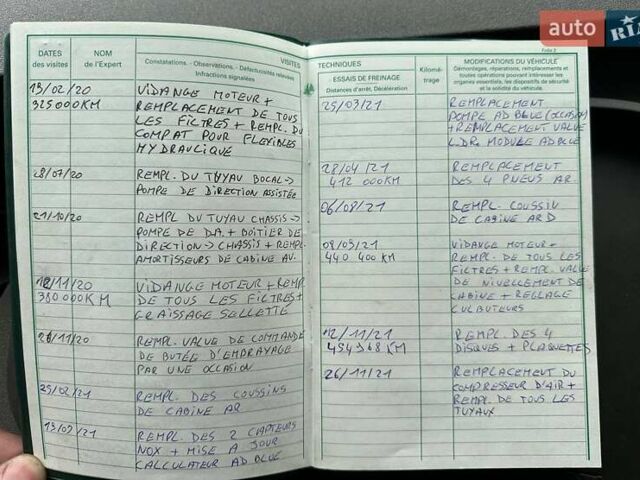 auto RIA
DATES
des visites
NOM
de l'Expert
VISITES
Constatations. - Observations. - Défectuosités relevées
Infractions signalées
13/02/20
325000KM
VIDANGE MOTEUR +
REMPLACEMENT DE TOUS
LES FILTRES + REMPL. DU
COMPAT POUR FLEXIBLES
HYDRAULIQUE
REMPL. DU TUYAU BOCAL →
POMPE DE DIRECTION ASSISTÉE
21/10/20
REMPL DU TUYAU CHASSIS →
POMPE DE D.A. + BOITIER DE
DIRECTION → CHASSIS + REMPL.
AMORTISSEURS DE CABINE AV.
380000KM
VIDANGE MOTEUR + REMP.
DE TOUS LES FILTRES +
GRAISSAGE SELLETTE
REMPL. VALVE DE COMMANDE
DE BUTÉE D'EMBRAYAGE
PAR UNE OCCASION
25/02/21
REMPL. DES COUSSINS
DE CABINE AR
REMPL. DES 2 CAPTEURS
NOX + MISE A JOUR
CALCULATEUR AD BLUE
TECHNIQUES
ESSAIS DE FREINAGE
Distances d'arrêt, Décélération
Kilomé-
trage
MODIFICATIONS DU VÉHICULE
Démontages, réparations, remplacements et
toutes opérations pouvant intéresser les
organes essentiels, les dispositifs de sécurité
et la solidité du véhicule.
Folio 2
25/03/21
REMPLACEMENT
POMPE AD BLUE (OCCASION)
+ REMPLACEMENT VALVE
MODULE ADBLUE
28/04/21
412 000KM
REMPLACEMENT
DES 4 PNEUS AR.
06/08/21
REMPL. COUSSIN
DE CABINE ARD
08/09/21
440 400 KM
VIDANGE MOTEUR +
REMPL. DE TOUS LES
FILTRES + REMPL. VALVE
DE NIVELLEMENT DE
CABINE + REGLAGE
CULBUTEURS
12/11/21
454968 KM
REMPL. DES 4
DISQUES + PLAQUETTES
26/11/21
REMPLACEMENT DU
COMPRESSEUR D'AIR +
REMPL. DE TOUS LES
TUYAUX